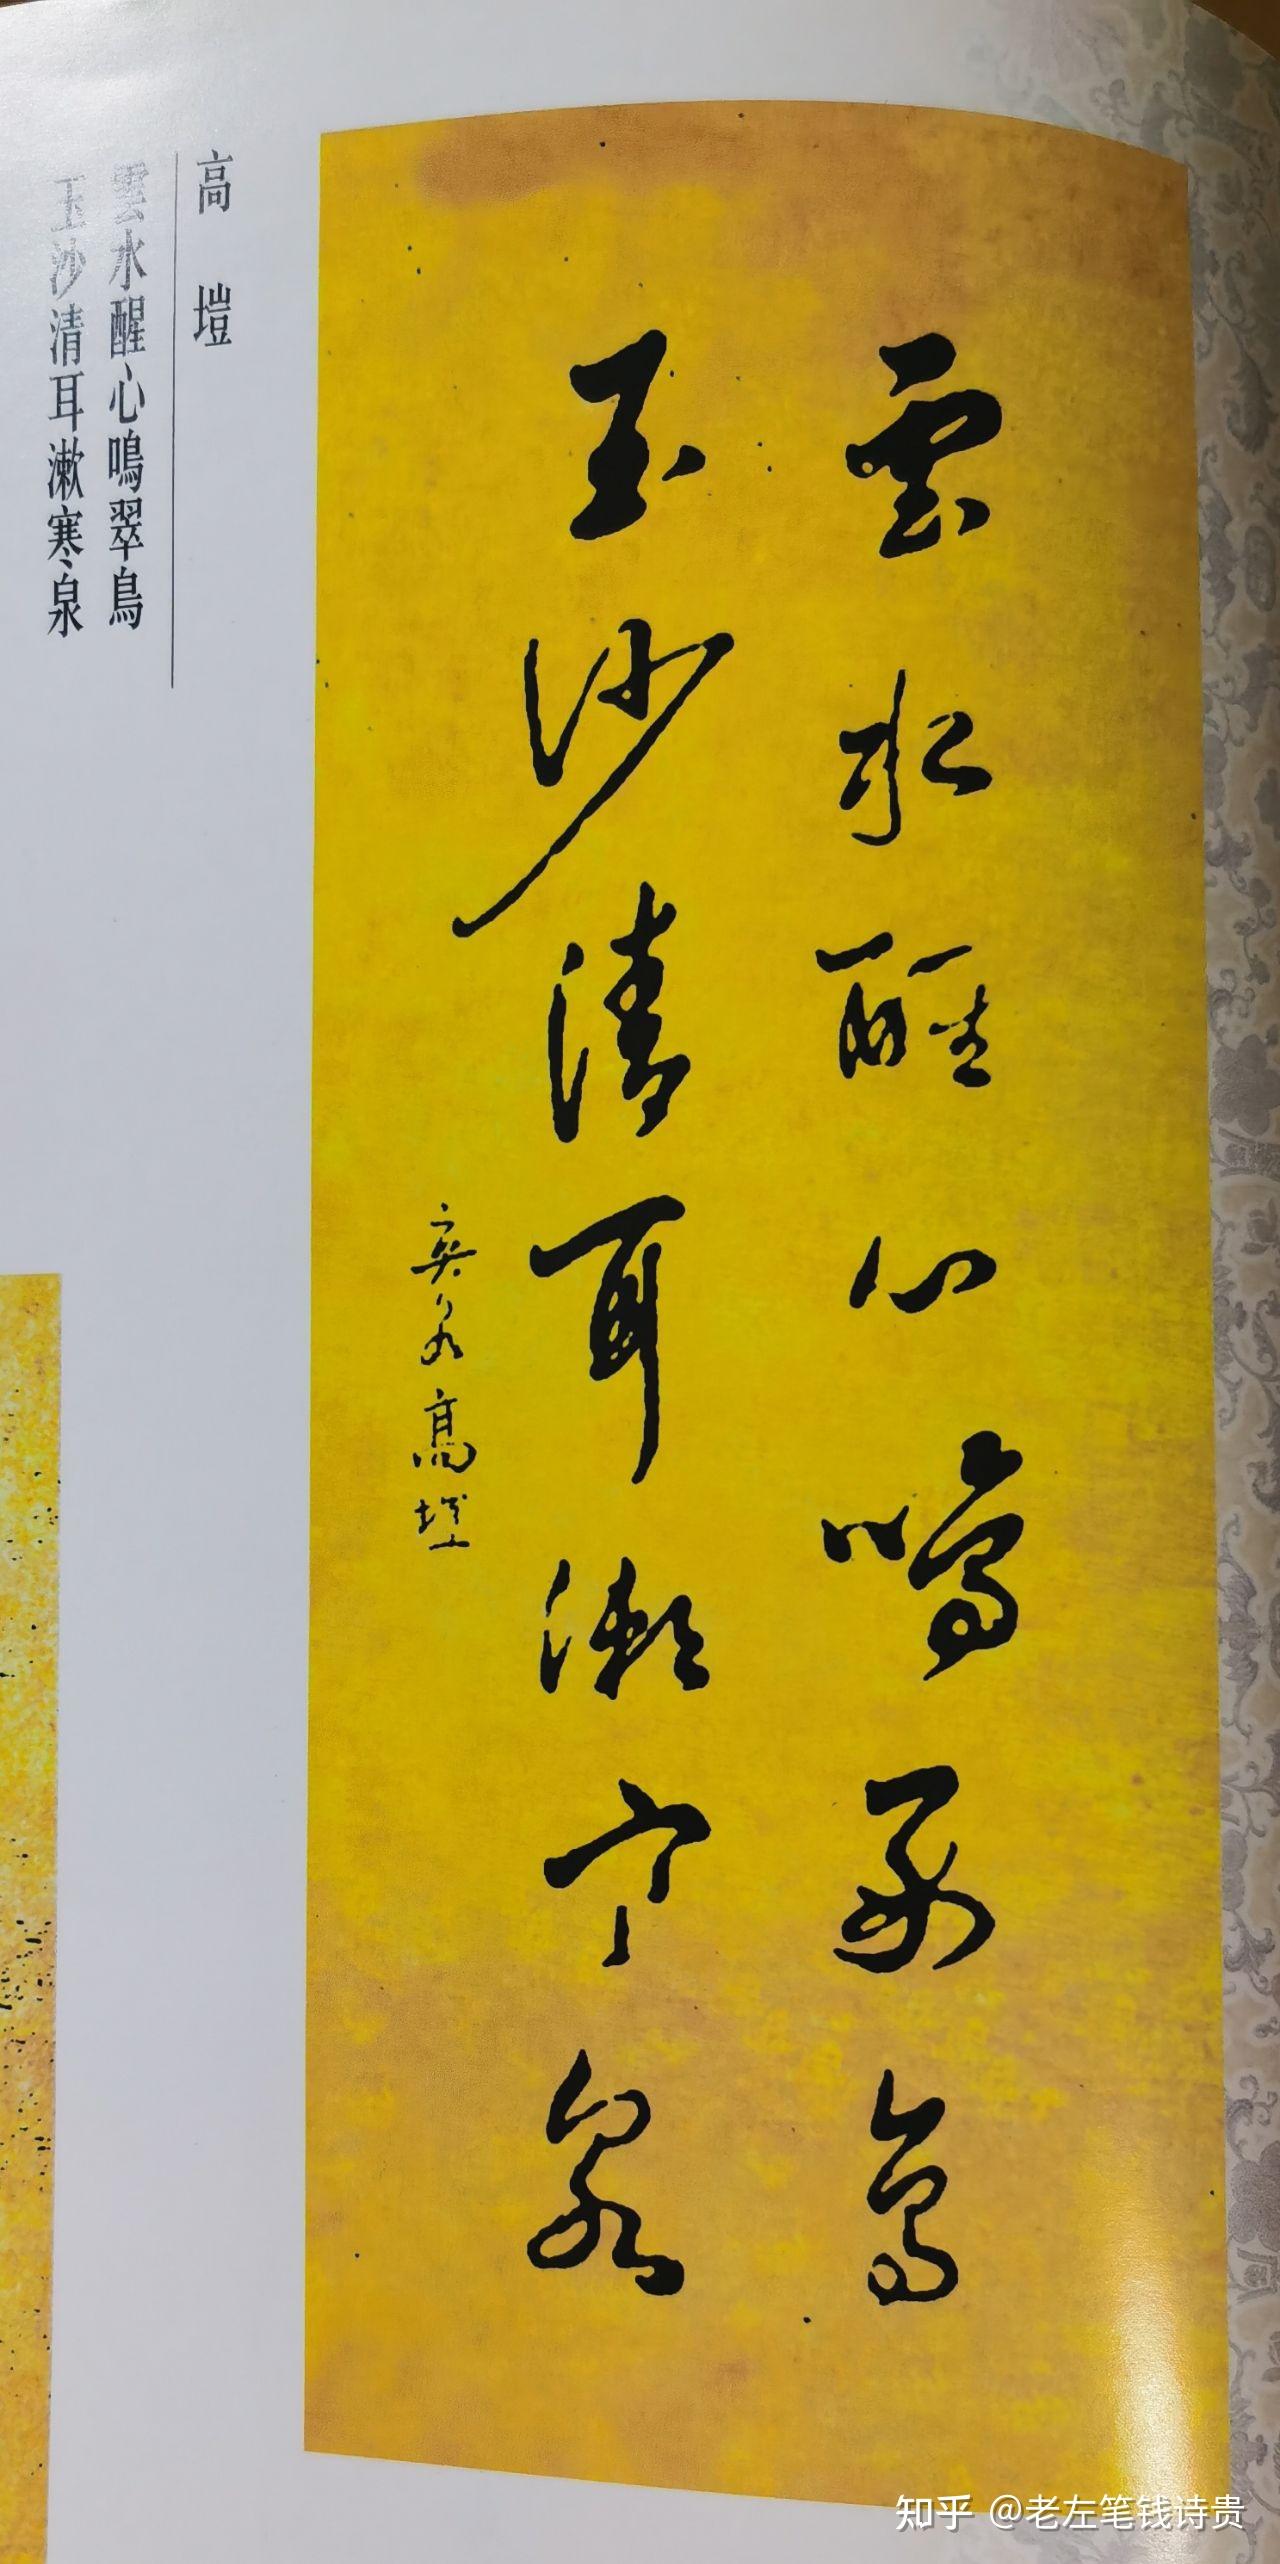 雲水醒心鳴翠鳥
玉沙清耳漱寒泉
爽泉高塏
高塏
雲水醒心鳴翠鳥
玉沙清耳漱寒泉
知乎 @老左笔钱诗贵